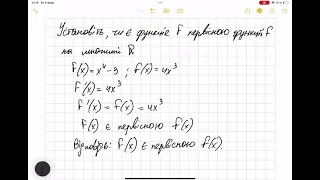 Установіть, чи є функція F первісною функції f
на множині R
F(x)=x⁴-3 ; f(x)=4x³
F'(x)=4x³
F'(x)=f(x)=4x³
F(x) є первісною f(x)
Відповідь: F(x) є первісною f(x)